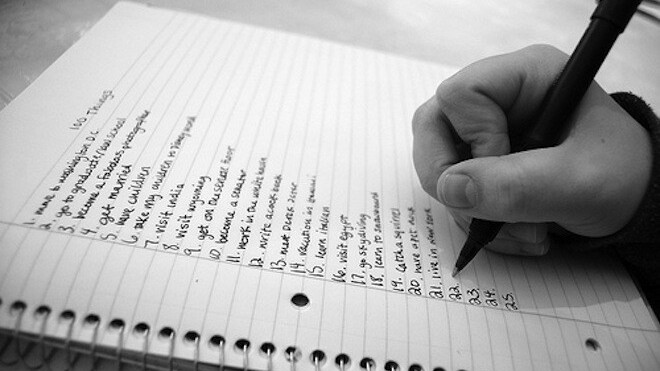 100 Things
1. move to washington D.C.
2. go to graduate/law school
3. become a fabolas photographer
4. get married
5. have children
6. take my children to disney world
7. visit india
8. visit wyoming
9. get on the senate floor
10. become a senator
11. work in the white house
12. write a cook book
13. meet Derek Jeter
14. vacation in
15. learn italian
16. visit egypt
17. go skydiving
18. learn to snowboard
19. catch a squirrel
20. have a pet
21. live in new york
22.
23.
24.
25.